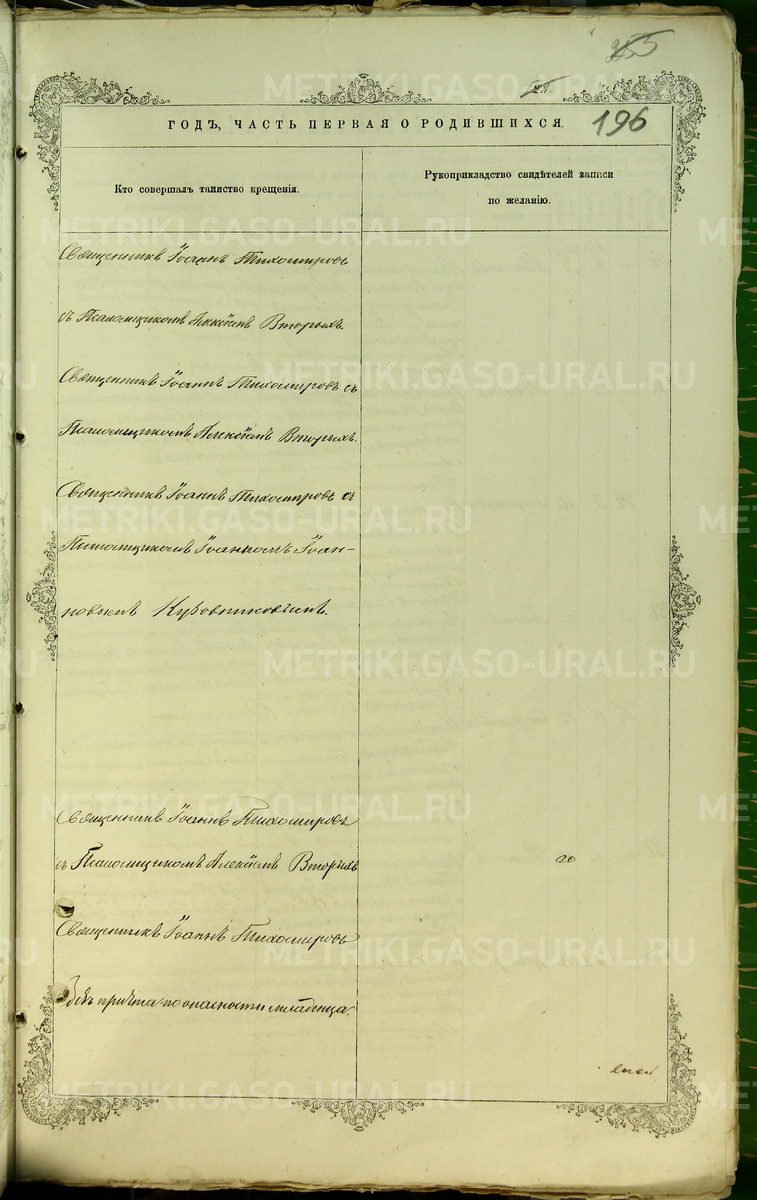 METRIKI.GASO-URAL.RU
ГОДЪ, ЧАСТЬ ПЕРВАЯ О РОДИВШИХСЯ.
196
Кто совершалъ таинство крещенія.
Рукоприкладство свидѣтелей записи
по желанію.
Священникъ Іоаннъ Тихомировъ
съ Псаломщикомъ Алексѣемъ Вторыхъ.
Священникъ Іоаннъ Тихомировъ съ
Псаломщикомъ Алексѣемъ Вторыхъ.
Священникъ Іоаннъ Тихомировъ съ
Псаломщикомъ Іоанномъ Іоан-
новымъ
Священникъ Іоаннъ Тихомировъ
съ Псаломщикомъ Алексѣемъ Вторыхъ
Священникъ Іоаннъ Тихомировъ
безъ причта по опасности младенца.